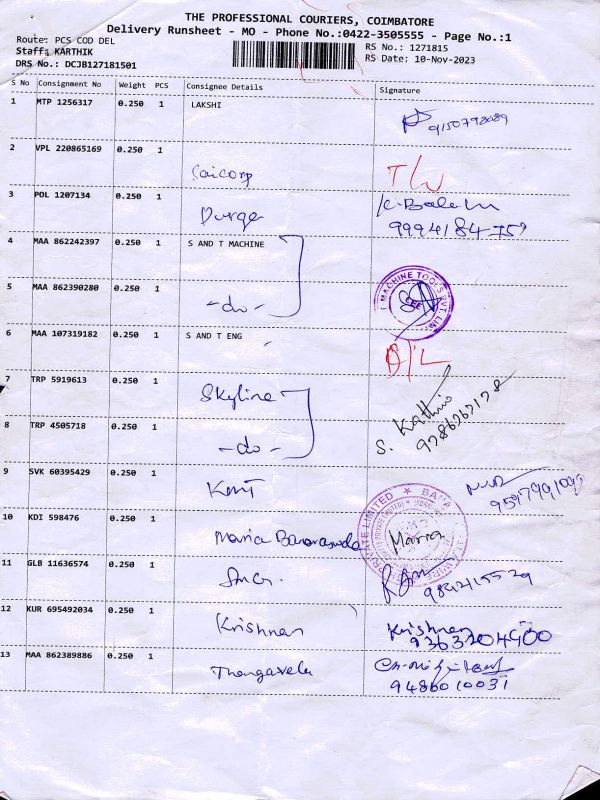 THE PROFESSIONAL COURIERS, COIMBATORE
Delivery Runsheet - MO - Phone No.:0422-3505555 - Page No.:1
Route: PCS COD DEL
Staff: KARTHIK
DRS No.: DCJB127181501
RS No.: 1271815
RS Date: 10-Nov-2023
S No Consignment No Weight PCS Consignee Details Signature
1 MTP 1256317 0.250 1 LAKSHI
2 VPL 220865169 0.250 1 Saicorp T/W
3 POL 1207134 0.250 1 Durga K. Balchu
4 MAA 862242397 0.250 1 S AND T MACHINE
5 MAA 862390280 0.250 1 -do- MACHINE TOOLS PVT. LIM
6 MAA 107319182 0.250 1 S AND T ENG D/L
7 TRP 5919613 0.250 1 Skyline S. Karthi
8 TRP 4505718 0.250 1 -do-
9 SVK 60395429 0.250 1 Kent
10 KDI 598476 0.250 1 Maria PRIVATE LIMITED ★ BANA Maria
11 GLB 11636574 0.250 1
12 KUR 695492034 0.250 1 Krishnan Krishnan
13 MAA 862389886 0.250 1 Thangavelu
9486010031